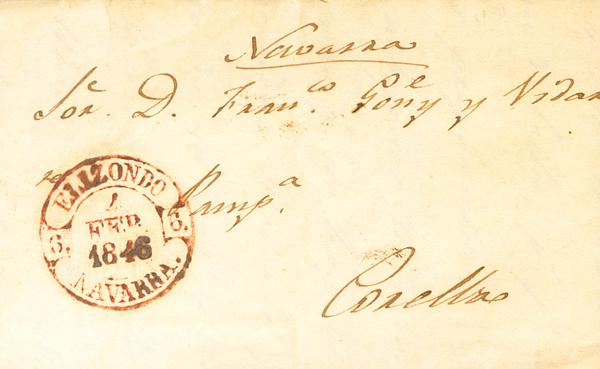 Navarra
Sor. D. Franco. Goñy y Vidar
te
Pampa.
Corella
ELIZONDO
6. 6.
1
FEB.
1846
NAVARRA.